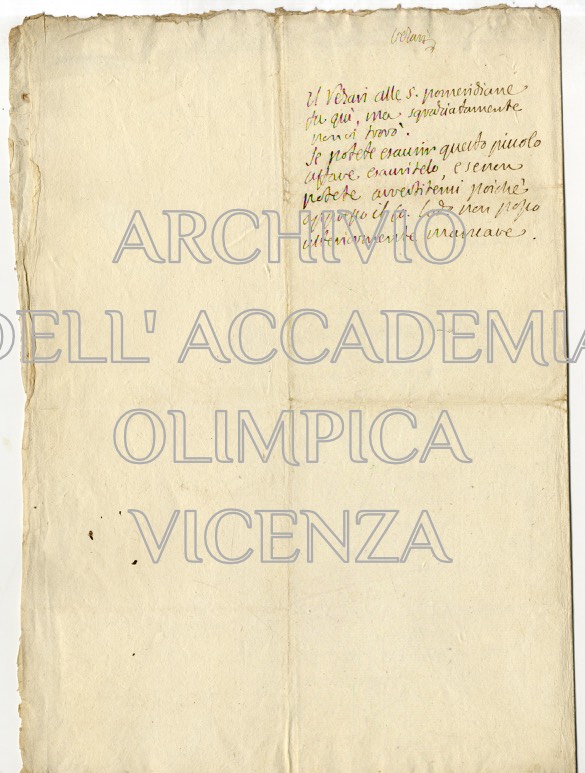 Verari
Il Verari alle 5. pomeridiane
fu quì, ma sgraziatamente
non vi trovò.
Se potete esaurir questo piccolo
affare esauritelo, e se non
potete avvertitemi poichè
appresso il Co: Lodo non posso
ulteriormente mancare.
ARCHIVIO
DELL' ACCADEMIA
OLIMPICA
VICENZA